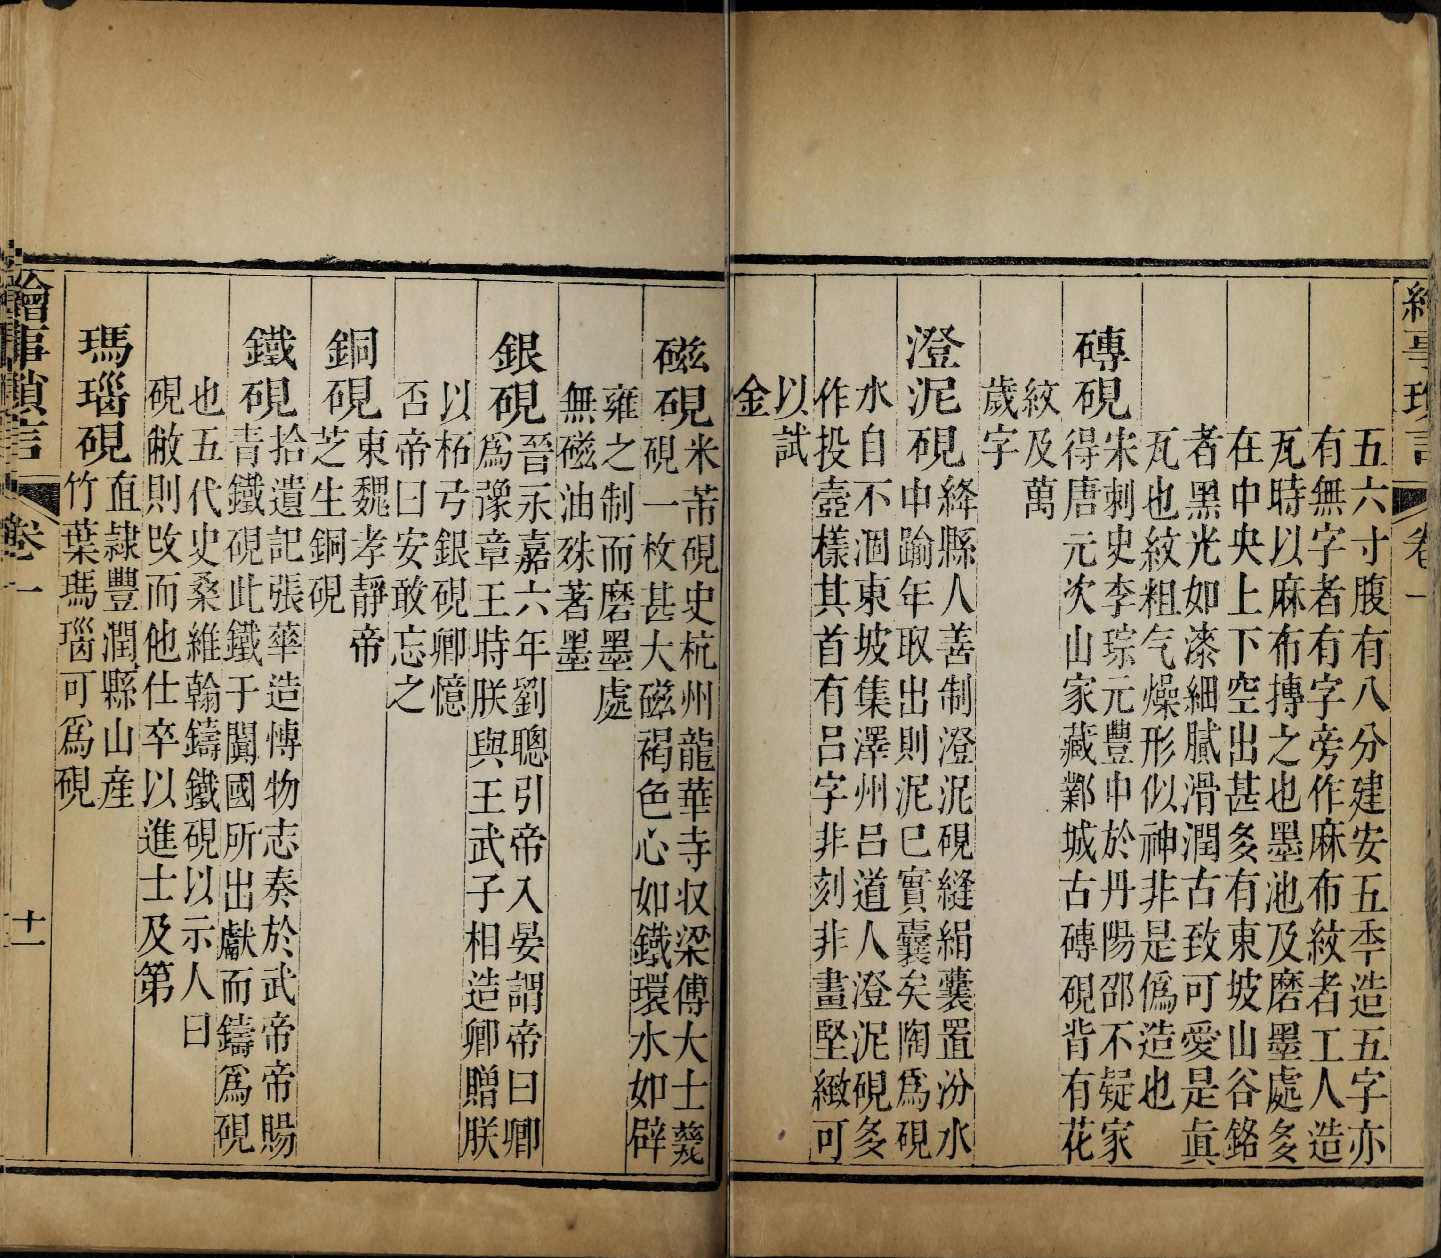 繪事瑣言 卷一
五六寸腹有八分建安五秊造五字亦
有無字者有字旁作麻布紋者工人造
瓦時以麻布摶之也墨池及磨墨處多
在中央上下空出甚多有東坡山谷銘
者黑光如漆細膩滑潤古致可愛是眞
瓦也紋粗气燥形似神非是僞造也
磚硯
宋刺史李琮元豐中於丹陽邵不疑家
得唐元次山家藏鄴城古磚硯背有花
紋及萬
歲字
澄泥硯
絳縣人善制澄泥硯縫絹囊置汾水
中踰年取出則泥已實囊矣陶爲硯
水自不涸東坡集澤州呂道人澄泥硯多
作投壺樣其首有呂字非刻非畫堅緻可
以試
金
磁硯
米芾硯史杭州龍華寺収梁傅大士甆
硯一枚甚大磁褐色心如鐵環水如辟
雍之制而磨墨處
無磁油殊著墨
銀硯
晉永嘉六年劉聰引帝入晏謂帝曰卿
爲豫章王時朕與王武子相造卿贈朕
以柘弓銀硯卿憶
否帝曰安敢忘之
銅硯
東魏孝靜帝
芝生銅硯
鐵硯
拾遺記張華造博物志奏於武帝帝賜
青鐵硯此鐵于闐國所出獻而鑄爲硯
也五代史桑維翰鑄鐵硯以示人曰
硯敝則改而他仕卒以進士及第
瑪瑙硯
直隸豐潤縣山産
竹葉瑪瑙可爲硯
繪事瑣言 卷一 十一